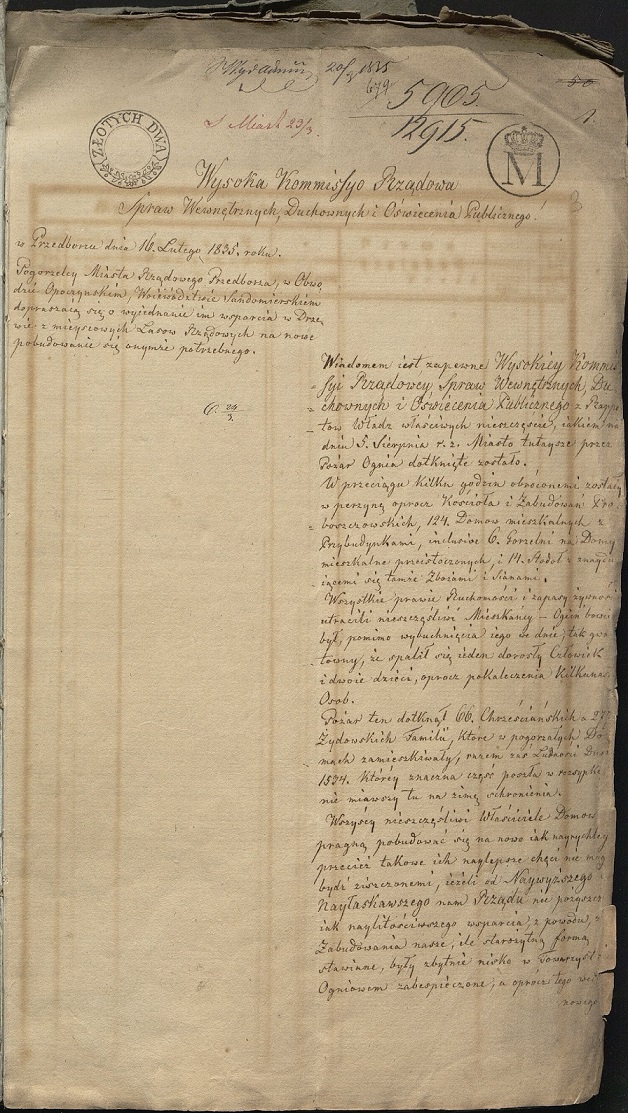 20/3 1835
679
5905
12915.
50
1.
z Miast 23/3.
ZŁOTYCH DWA
M
3
Wysoka Kommissyo Rządowa
Spraw Wewnętrznych, Duchownych i Oświecenia Publicznego!
w Przedborzu dnia 16. Lutego 1835. roku.
Pogorzelcy Miasta Rządowego Przedborza, w Obwo
dzie Opoczyńskim, Woiewództwie Sandomierskiem
dopraszają się o wyiednanie im wsparcia w Drze
wie z mieyscowych Lasow Rządowych na nowe
pobudowanie się onymże potrzebnego.
Wiadomem iest zapewne Wysokiey Kommis
syi Rządowey Spraw Wewnętrznych, Du
chownych i Oświecenia Publicznego z Rappo
tow Władz właściwych nieszczęście, iakiem na
dniu 5. Sierpnia r. z. Miasto tuteysze przez
Pożar Ognia dotknięte zostało.
W przeciągu kilku godzin obroconemi zostały
w perzynę oprocz Kościoła i Zabudowań Pro
boszczowskich, 124. Domow mieszkalnych, z
Przybudynkami, inclusive 6. Gorzelni na Domy
mieszkalne przeistoczonych, i 14. Stodoł z znaydu
iącemi się tamże Zbożami i Sianami.
Wszystkie prawie Ruchomości i zapasy żywności
utracili nieszczęśliwi Mieszkańcy – Ogień bowiem
był, pomimo wybuchnięcia iego we dnie, tak gwa
łtowny, że spalił się ieden dorosły Człowiek
i dwoie dzieci, oprocz pokaleczenia Kilkunas
Osob.
Pożar ten dotknął 66. Chrześciańskich a 27
Żydowskich Familii, ktore w pogorzałych Do
mach zamieszkiwały, razem zaś Ludności Dusz
1534. ktorey znaczna część poszła w rozsypkę
nie miawszy tu na zimę schronienia.
Wszyscy nieszczęśliwi Właściciele Domow
pragną pobudować się na nowo iak nayrychley
przecież takowe ich naylepsze chęci nie mogą
bydź ziszczonemi, ieżeli od Naywyższego
Nayłaskawszego nam Rządu nie pozyszczą
iak naylitościwszego wsparcia, z powodu, że
Zabudowania nasze, ile starożytną formą
stawiane, były zbytnie nisko w Towarzyst
Ogniowem zabespieczone, a oprocz tego
nowego